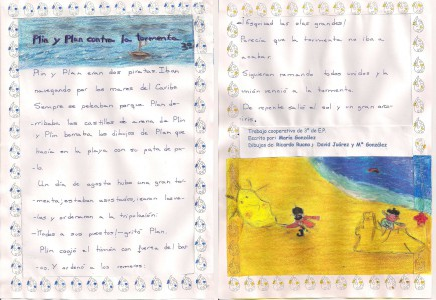 Plin y Plan contra la tormenta
3º
Plin y Plan eran dos piratas. Iban
navegando por los mares del Caribe
Siempre se peleaban porque Plan de-
rribaba los castillos de arena de Plin
y Plin borraba los dibujos de Plan que
hacía en la playa con su pata de pa-
lo.
Un día de agosto hubo una gran tor-
menta, estaban asustados,
y ordenaron a la tripulación:
-¡Todos a sus puestos!-gritó Plan.
Plin cogió el timón con fuerza del bar-
co. Y ordenó a los remeros:
las olas grandes!
Parecía que la tormenta no iba a
acabar.
Siguieron remando todos unidos y la
unión venció a la tormenta.
De repente salió el sol y un gran
Trabajo cooperativo de 3º de E.P.
Escrito por: María González
Dibujos de: Ricardo Bueno, David Juárez y Mª González